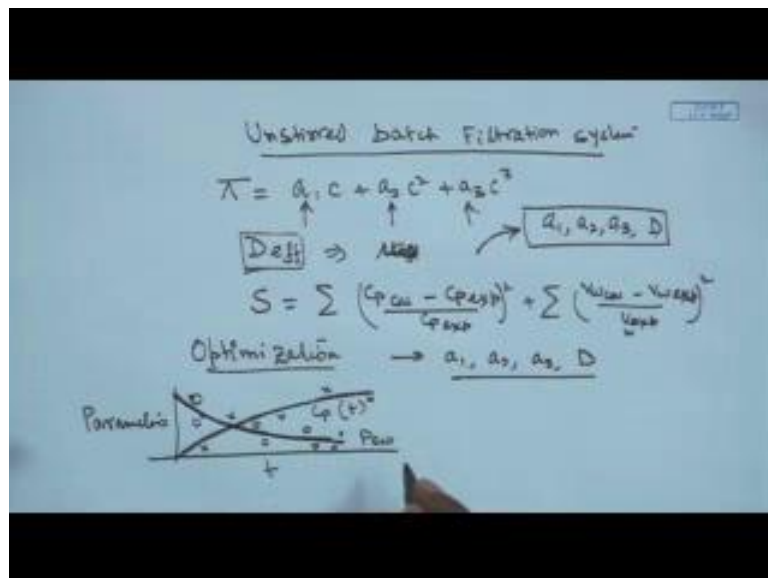 Unstirred batch Filtration system
π = a₁ c + a₂ c² + a₃ c³
a₁, a₂, a₃, D
Deff ⇒
S = Σ (Cp cal - Cp exp / Cp exp)² + Σ (Vw cal - Vw exp / Vw exp)²
Optimization → a₁, a₂, a₃, D
Cp (t)
Flux
t